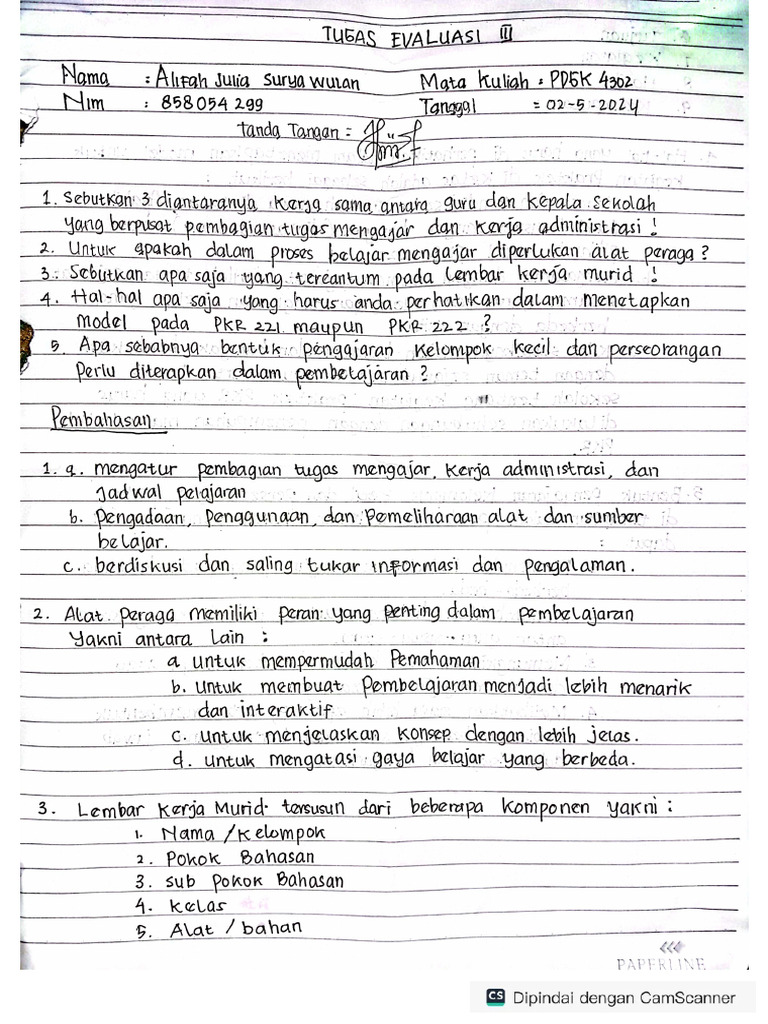 TUGAS EVALUASI III
Nama : Alifah Julia Surya Wulan Mata Kuliah : PDGK 4302
Nim : 858054299 Tanggal = 02-5-2024
tanda Tangan =
1. Sebutkan 3 diantaranya kerja sama antara guru dan kepala sekolah
yang berpusat pembagian tugas mengajar dan kerja administrasi !
2. Untuk apakah dalam proses belajar mengajar diperlukan alat peraga ?
3. Sebutkan apa saja yang tercantum pada lembar kerja murid !
4. Hal-hal apa saja yang harus anda perhatikan dalam menetapkan
model pada PKR 221 maupun PKR 222 ?
5. Apa sebabnya bentuk pengajaran kelompok kecil dan perseorangan
Perlu diterapkan dalam pembelajaran ?
Pembahasan
1. a. mengatur pembagian tugas mengajar, kerja administrasi, dan
Jadwal pelajaran
b. pengadaan, penggunaan, dan pemeliharaan alat dan sumber
belajar.
c. berdiskusi dan saling tukar informasi dan pengalaman.
2. Alat Peraga memiliki peran yang penting dalam pembelajaran
Yakni antara lain :
a untuk mempermudah Pemahaman
b. untuk membuat Pembelajaran menjadi lebih menarik
dan interaktif
c. untuk menjelaskan konsep dengan lebih jelas.
d. untuk mengatasi gaya belajar yang berbeda.
3. Lembar kerja Murid tersusun dari beberapa komponen yakni :
1. Nama / Kelompok
2. Pokok Bahasan
3. sub pokok Bahasan
4. Kelas
5. Alat / bahan
PAPERLINE
CS Dipindai dengan CamScanner